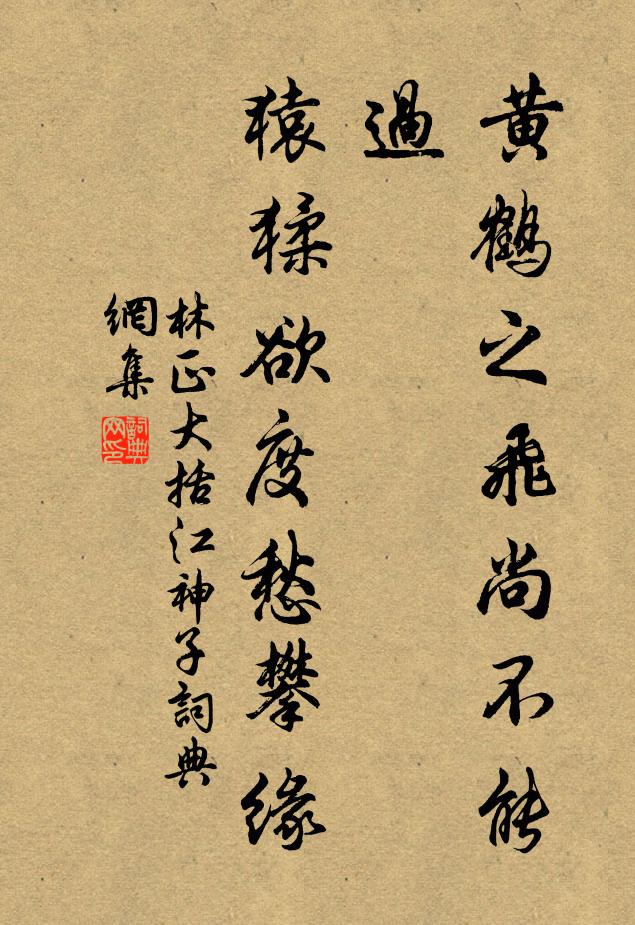 黄鶴之飛尚不能
過
猿猱欲度愁攀緣
林正大括江神子詞典
網集
詞典
网印